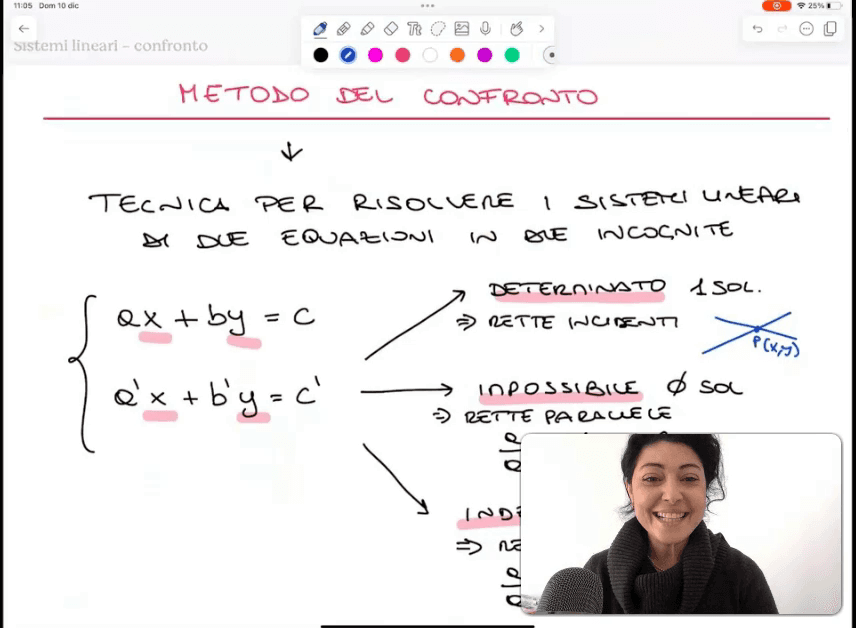 11:05 Dom 10 dic
25%
Sistemi lineari – confronto
METODO DEL CONFRONTO
TECNICA PER RISOLVERE I SISTEMI LINEARI
DI DUE EQUAZIONI IN DUE INCOGNITE
ax + by = c
a'x + b'y = c'
DETERMINATO 1 SOL.
⇒ RETTE INCIDENTI
P(x,y)
IMPOSSIBILE ∅ SOL
⇒ RETTE PARALLELE
INDE
⇒ RE